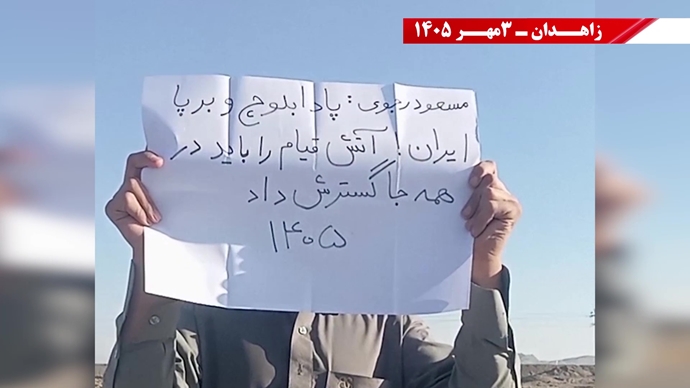 زاهدان ـ ۳مهر ۱۴۰۵
مسعود رجوی: پادا بلوچ و برپا
ایران! آتش قیام را باید در
همه جا گسترش داد
۱۴۰۵